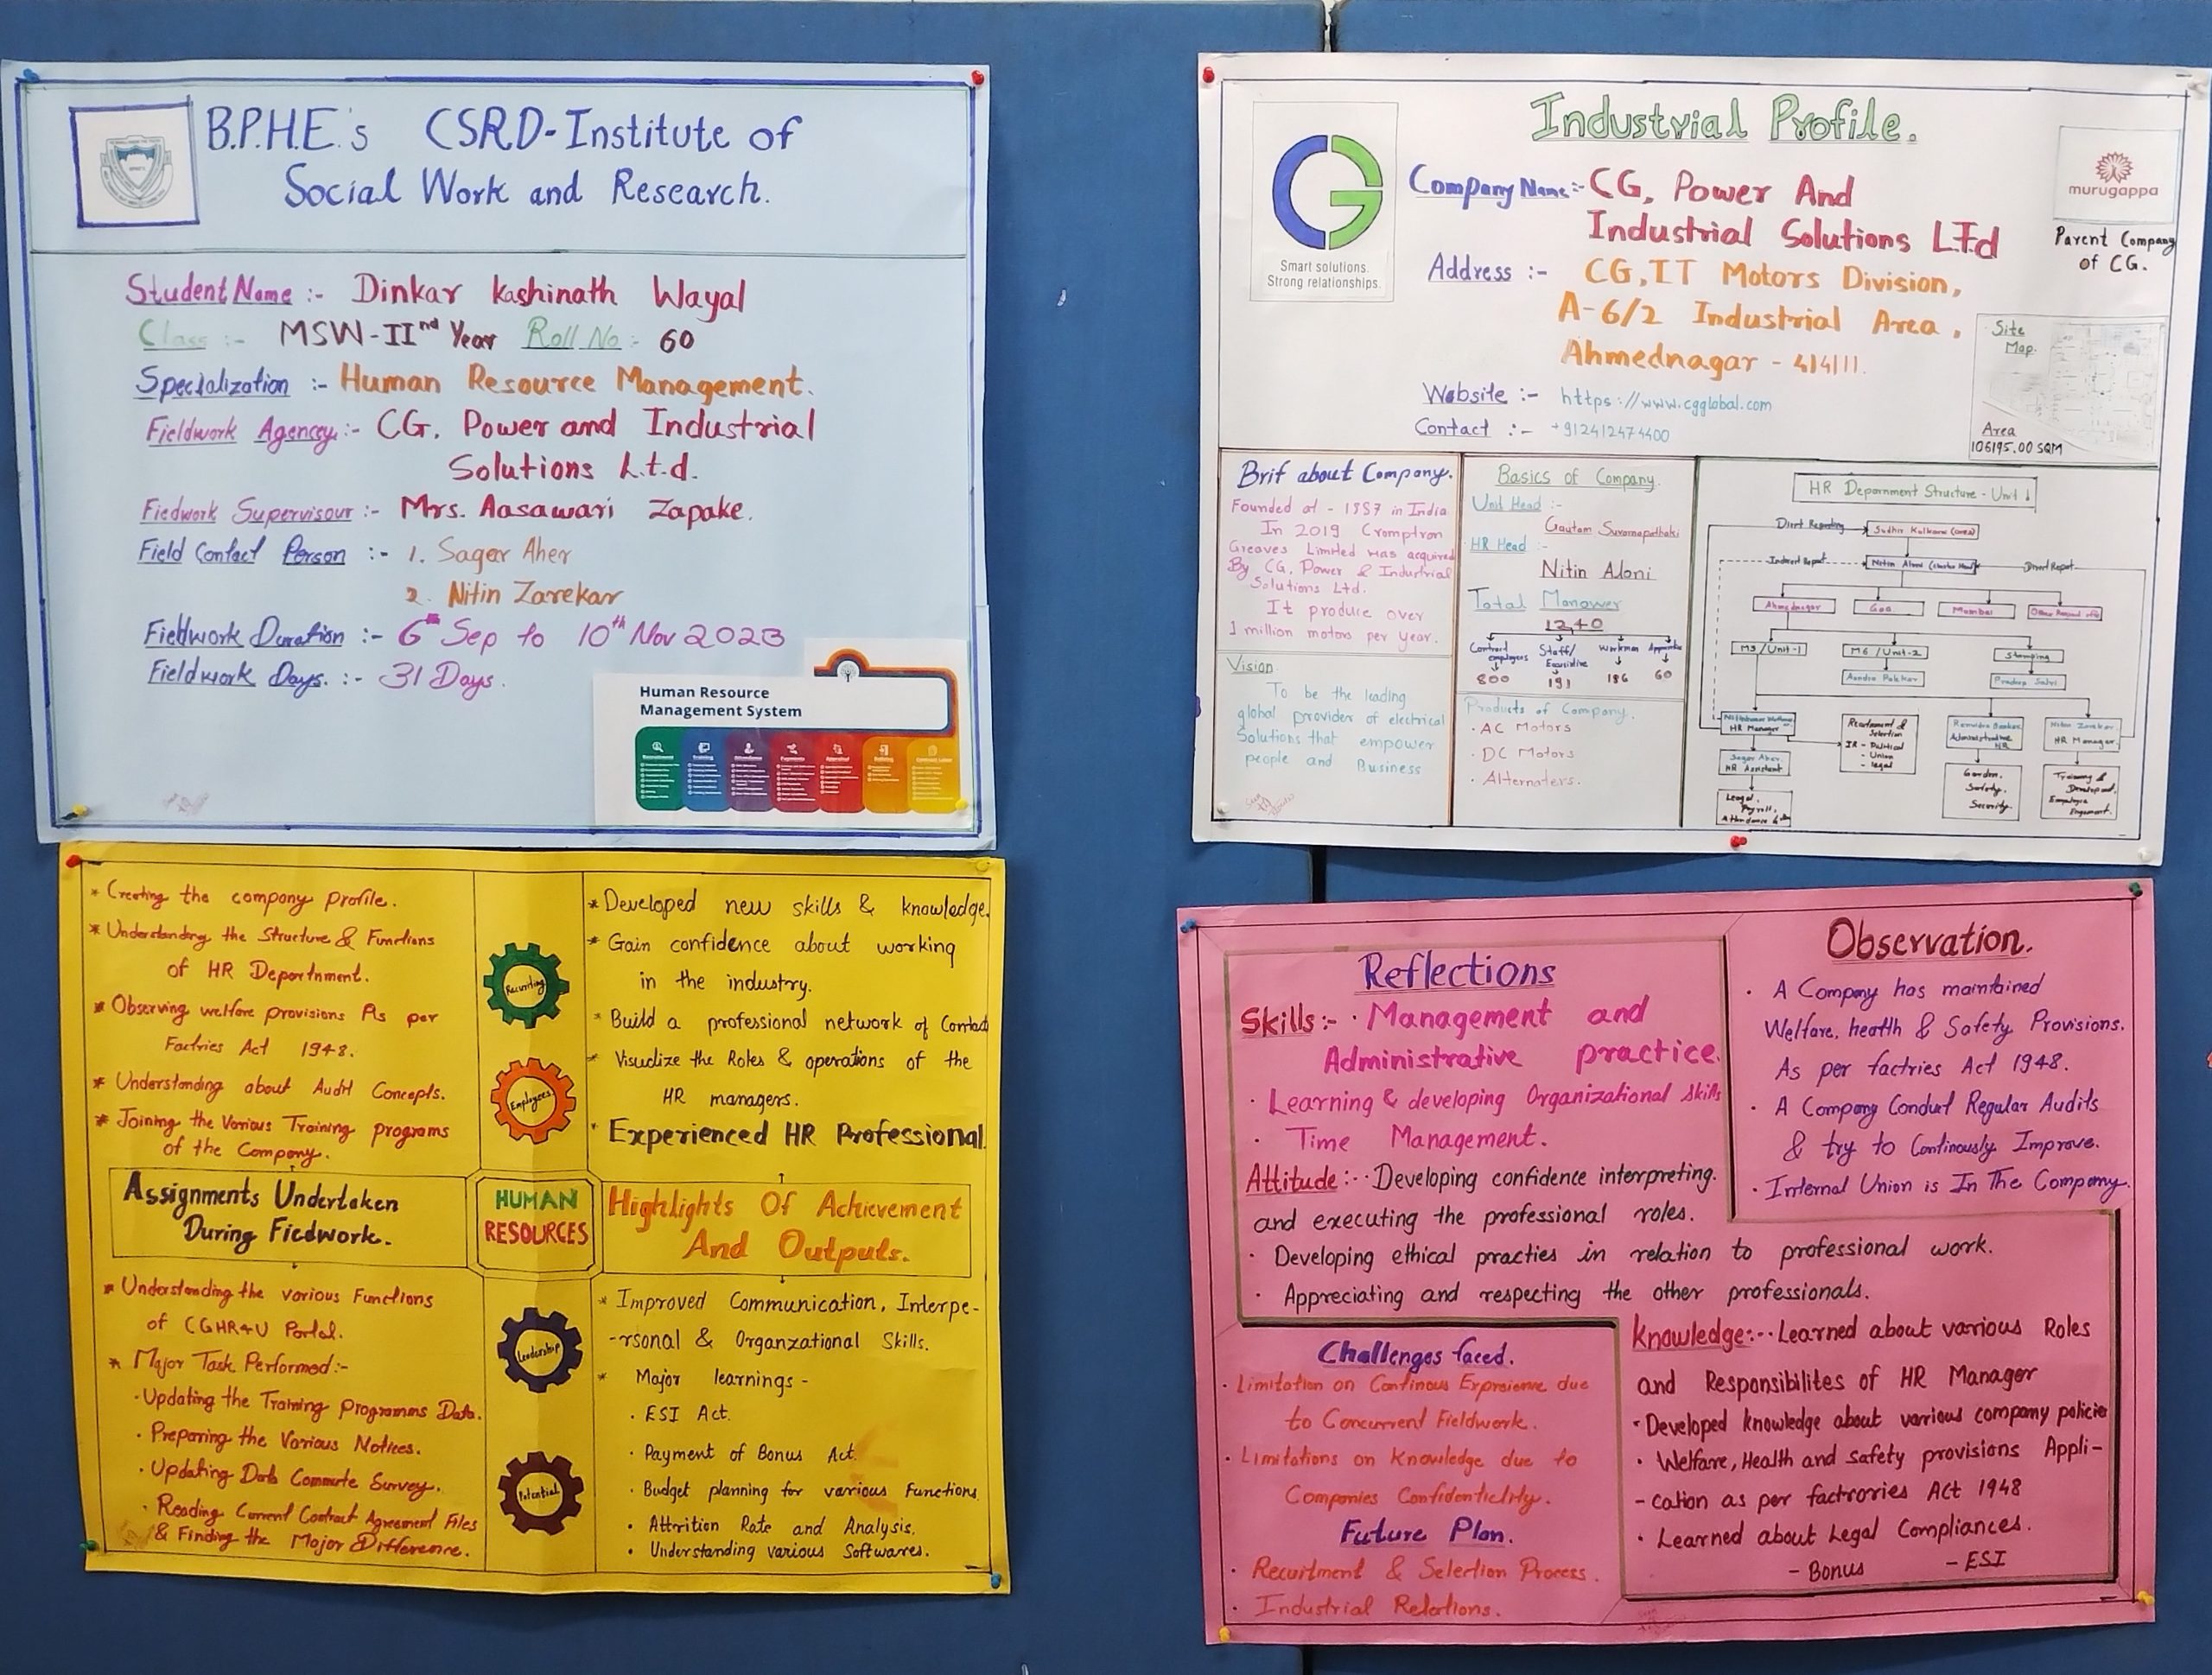 B.P.H.E.'s CSRD-Institute of
Social Work and Research.
Student Name :- Dinkar Kashinath Wayal
Class :- MSW-IInd Year Roll No :- 60
Specialization :- Human Resource Management.
Fieldwork Agencey :- CG, Power and Industrial
Solutions L.t.d.
Fiedwork Supervisour :- Mrs. Aasawari Zapake.
Field Contact Person :- 1. Sagar Aher
2. Nitin Zarekar
Fieldwork Duration :- 6th Sep to 10th Nov 2023
Fieldwork Days. :- 31 Days.
Human Resource
Management System
Industrial Profile.
Smart solutions.
Strong relationships.
Company Name :- CG, Power And
Industrial Solutions LTd
murugappa
Parent Company
of CG.
Address :- CG, IT Motors Division,
A-6/2 Industrial Area,
Ahmednagar - 414111.
Website :- https://www.cgglobal.com
Contact :- +912412474400
Site
Map.
Area
106195.00 SQM
Brif about Company.
Founded at - 1937 in India
In 2019 Cromptron
Greaves Limited was acquired
By CG, Power & Industrial
Solutions Ltd.
It produce over
1 million motors per year.
Vision
To be the leading
global provider of electrical
Solutions that empower
people and Business
Basics of Company.
Unit Head :-
Gautam
HR Head :-
Nitin Aloni
Total Manower
1240
Contract employees Staff/Executive Workmen Apprentice
800 191 186 60
Products of Company.
· AC Motors
· DC Motors
· Alternaters.
HR Depernment Structure - Unit 1
Direct Reporting Sudhir Kulkarni
Indirect Report Nitin Aloni (cluster Head) Direct Report
Ahmednagar Goa Mumbai
M3/Unit-1 M6/Unit-2 Stamping
HR Manager
Recruitment & Selection
IR - Political
- Union
- legal
Administrative HR
Nitin Zarekar
HR Manager
Sagar Aher
HR Assistant
Legal,
Payroll,
Garden,
Safety,
Security.
Training &
Development,
Employee
Engagement.
* Creating the company profile.
* Understanding the Structure & Functions
of HR Depertnment.
* Observing welfare provisions As per
Factries Act 1948.
* Understanding about Audit Concepts.
* Joining the Various Training programs
of the Company.
Assignments Undertaken
During Fiedwork.
* Understanding the various Functions
of CGHR4U Portal.
* Major Task Performed:-
· Updating the Training Programms Data.
· Preparing the Various Notices.
· Updating Data Commute Survey.
· Reading Current Contract Agreement Files
& Finding the Major Difference.
Recruiting
Employees
HUMAN
RESOURCES
Leadership
Potential
* Developed new skills & knowledge.
* Gain confidence about working
in the industry.
* Build a professional network of Contact
* Visualize the Roles & operations of the
HR managers.
· Experienced HR Professional.
Highlights Of Achievement
And Outputs.
* Improved Communication, Interpe-
-rsonal & Organzational Skills.
* Major learnings -
· ESI Act.
· Payment of Bonus Act.
· Budget planning for various Functions.
· Attrition Rate and Analysis.
· Understanding various Softwares.
Reflections
Skills:- · Management and
Administrative practice.
· Learning & developing Organizational Skills
· Time Management.
Attitude:- · Developing confidence interpreting.
and executing the professional roles.
· Developing ethical practies in relation to professional work.
· Appreciating and respecting the other professionals.
Observation.
· A Company has maintained
Welfare, health & Safety Provisions.
As per factries Act 1948.
· A Company Conduct Regular Audits
& try to Continously Improve.
· Internal Union is In The Company.
Challenges faced.
· Limitation on Continous Expreience due
to Concurrent Fieldwork.
· Limitations on Knowledge due to
Companies Confidenticlity.
Future Plan.
· Recuitment & Selection Process.
· Industrial Relations.
Knowledge:- · Learned about various Roles
and Responsibilites of HR Manager
· Developed knowledge about various company policies
· Welfare, Health and Safety provisions Appli-
-cation as per factrories Act 1948
· Learned about Legal Compliances.
- Bonus - ESI